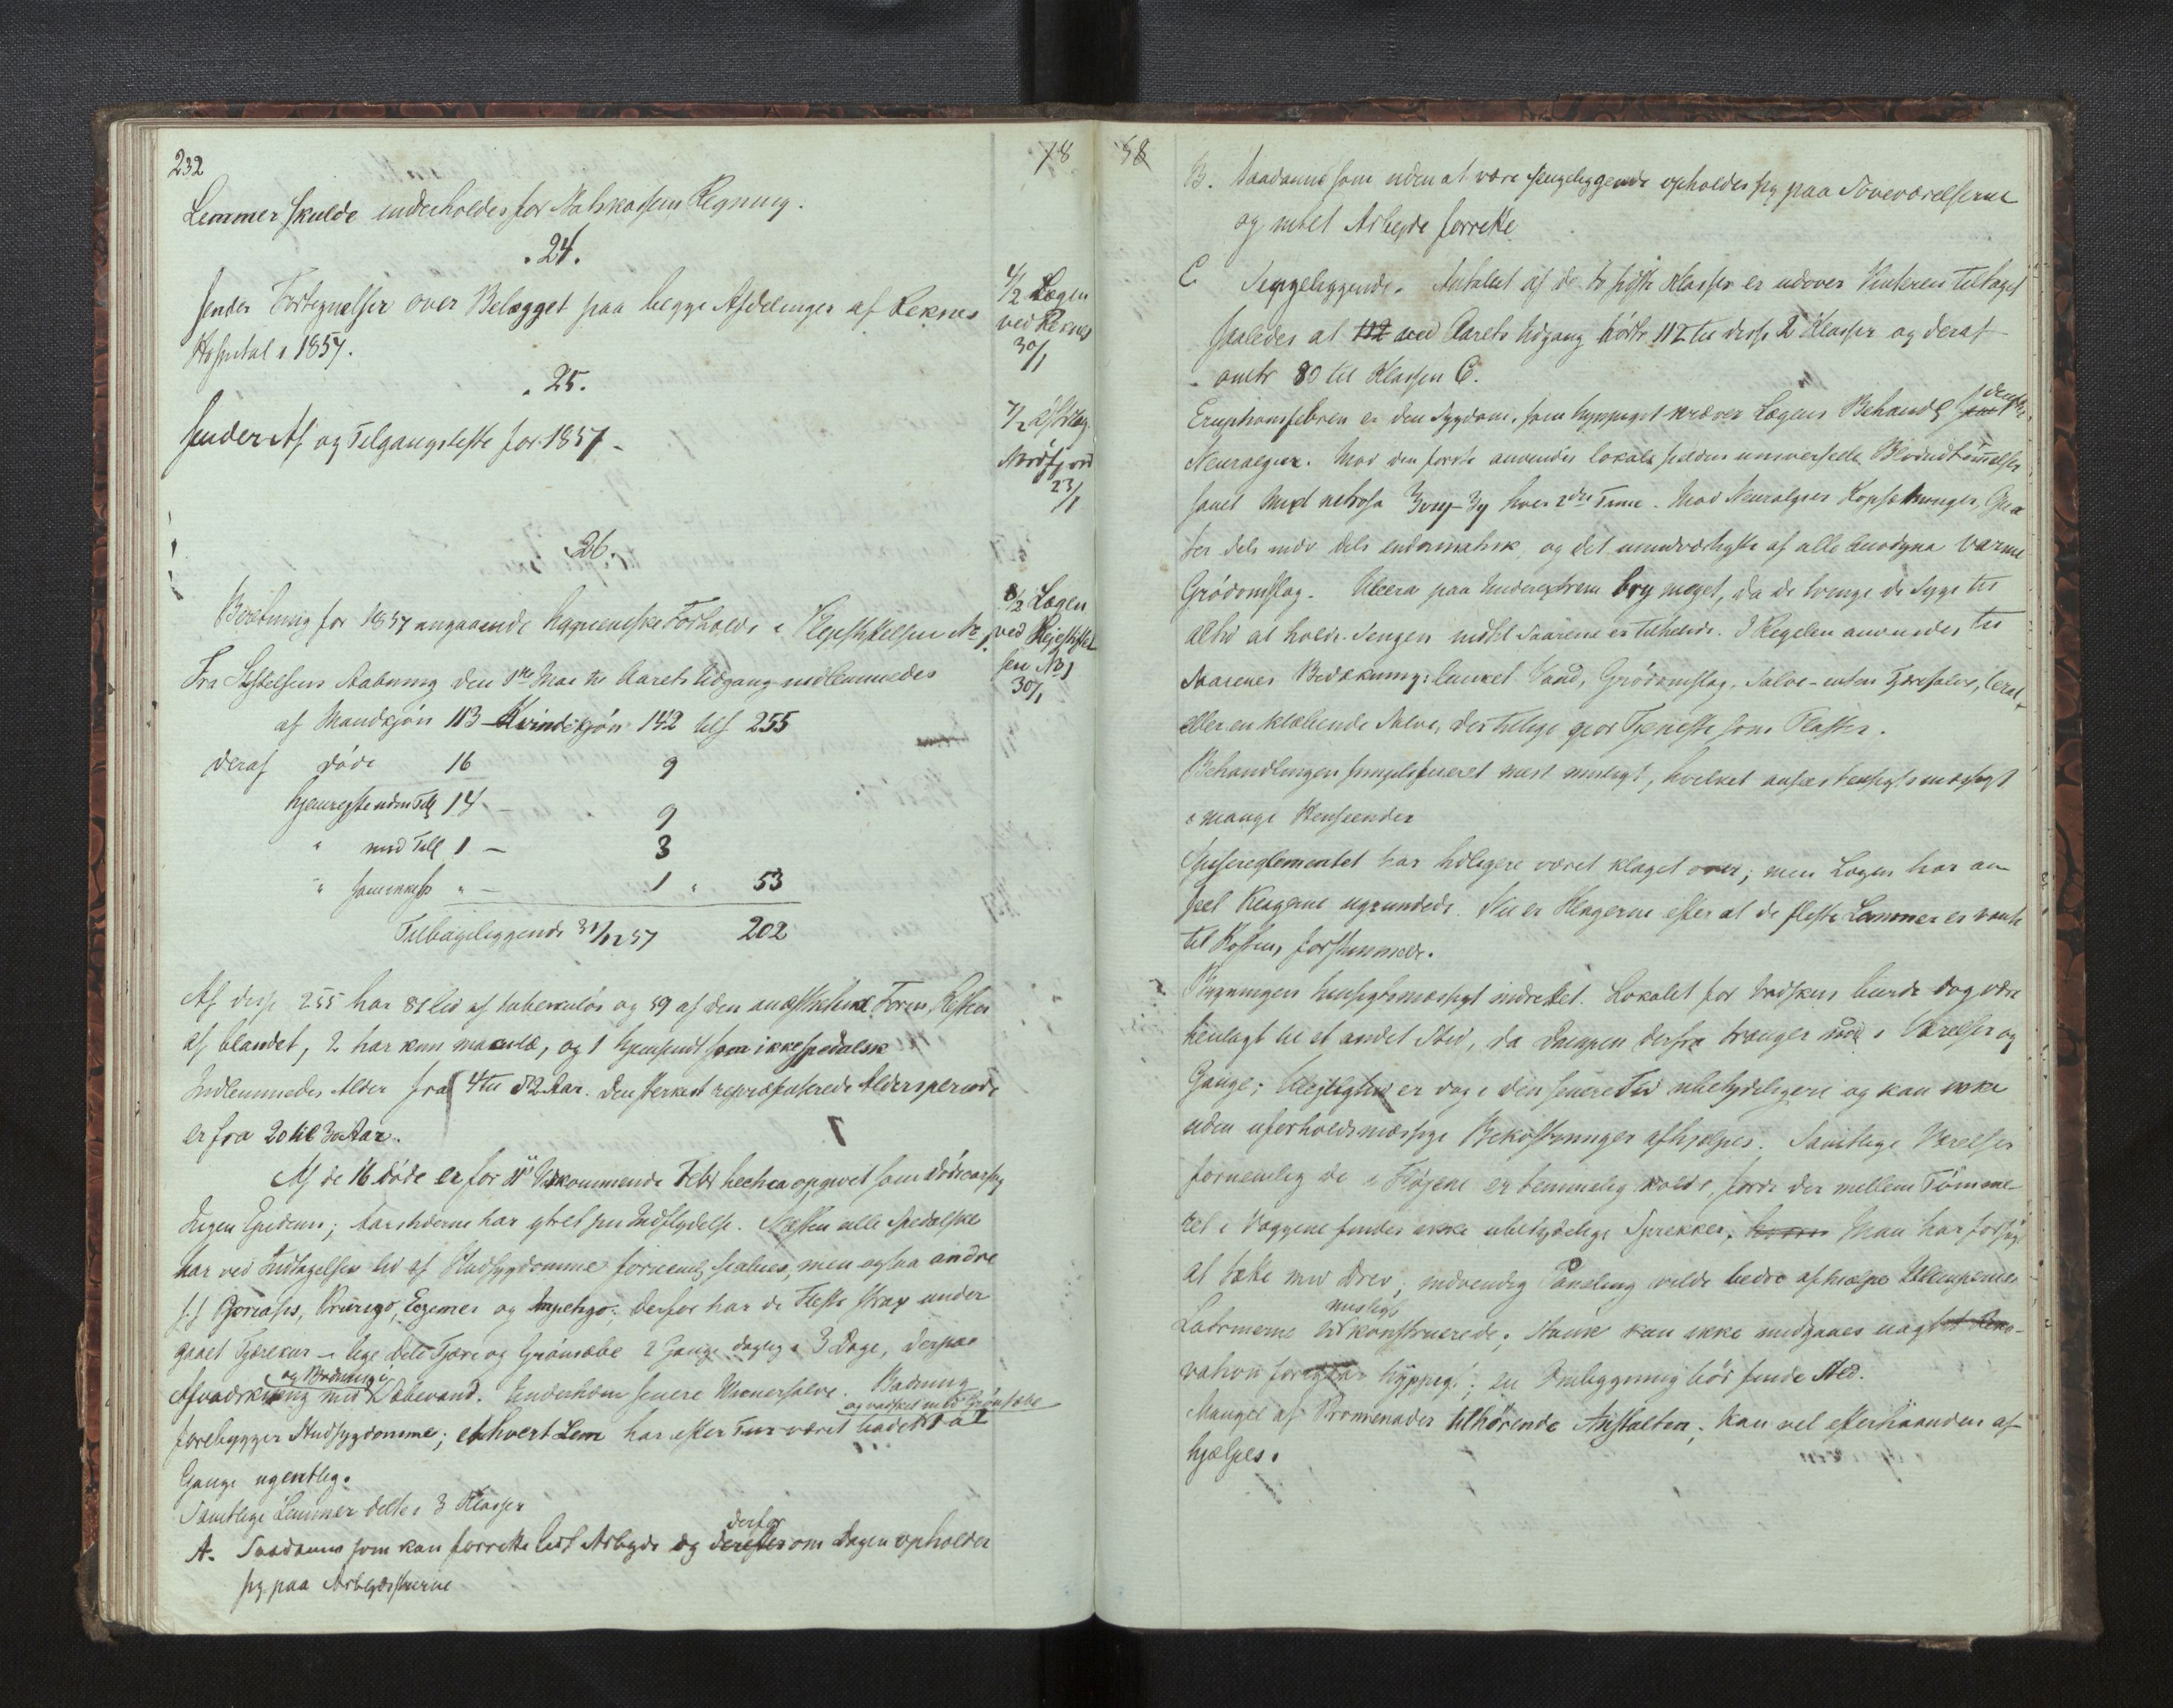 232
Lemmer skulde underholdes for Statskassens Regning.
24.
sender Fortegnelser over Belægget paa begge Afdelinger af Reknes
Hospital i 1857.
4/2 Lægen
ved Reknes
30/1
25.
sender Af og Tilgangsliste for 1857 -
7/2
Nordfjord
23/1
26.
Beretning for 1857 angaaende hygieniske Forholde i Plejestiftelsen No 1.
8/2 Lægen
ved Plejestiftel
sen No 1
30/1
Fra Stiftelsens Aabning den 1ste Mai til Aarets Udgang indlemmedes
af Mandkjøn 113 - Kvindekjøn 142 tils 255
deraf døde 16 9
hjemrejste uden Till 14 - 9
" med Till 1 - 3
" " - 1 " 53
Tilbageliggende 31/12 57 202
Af disse 255 har 81 lid af tuberkuløs og 59 af den anæsthetiske Form, Resten
af blandet, 2 har kun maculæ, og 1 hjemsendt som ikke spedalsk
Indlemmedes Alder fra 4 til 82 Aar. Den sterkest repræsenterede Aldersperiode
er fra 20 til 30 Aar.
Af de 16 døde er for 11 Vedkommende Febr hectica opgivet som Dødsaarsag
Ingen Epidemi; Aarstiderne har ytret sin Indflydelse. Næsten alle Spedalske
har ved Indtagelsen lid af Hudsygdomme fornemlig scabies, men ogsaa andre
s.s. Psoriasis, Prurigo, Eczemer og Impetigo; derfor har de Fleste strax under
gaaet Tjærekur - lige Dele Tjære og Grønsæbe 2 Gange daglig i 3 Dage, derpaa
og Badning i
Afvadskning med Sæbevand. Undertiden senere Wienersalve. Badning
og vadsket med Grønsæbe
forebygger Hudsygdomme; ethvert Lem har efter Tur været badet 1 a 2
Gange ugentlig.
Samtlige Lemmer deltes i 3 Klasser
derfor
A. Saadanne som kan forrette lidt Arbejde og derefter om Dagen opholder
sig paa Arbejdsstuerne
78
58
B. Saadanne som uden at være sengeliggende opholder sig paa Soveværelserne
og intet Arbejde forrette
C Sengeliggende. Antallet af de to sidste Klasser er udover Vinteren tiltaget
saaledes at 112 ved Aarets Udgang hørte 112 til disse 2 Klasser og deraf
omtr 80 til Klassen C.
Eruptionsfebren er den Sygdom, som hyppigst kræver Lægens Behandlg
Neuralgier. Mod den første anvendes lokale sjelden universelle Blodudtømmelser
samt Mixt nitrosa hver 2den Time. Mod Neuralgier Kopsætninger, Opia
ter dels indv dels endermatisk, og det uundværligste af alle Anodyna varme
Grødomslag. Ulcera paa Underextrem bry meget, da de tvinge de Syge til
altid at holde Sengen indtil Saarene er tilhelede. I Regelen anvendes til
Saarenes Bedækning: lunket Vand, Grødomslag, Salve - enten Tjæresalve, Cerat
eller en klæbende Salve, der tillige gjør Tjeneste som Plaster.
Behandlingen simplificeret mest muligt, hvilket ansees hensigtsmæssigt
i mange Henseender
Spisereglementet har tidligere været klaget over; men Lægen har an
seet Klagerne ugrundede. Nu er Klagerne efter at de fleste Lemmer er vante
til Kosten, forstummede.
Bygningen hensigtsmæssigt indrettet. Lokalet for Vadsken burde dog være
henlagt til et andet Sted, da Dampen derfra trænger ind i Værelser og
Gange; Ulejligheden er dog i den senere Tid ubetydeligere og kan ikke
uden uforholdsmæssige Bekostninger afhjælpes. Samtlige Værelser
fornemlig de i Fløjene er temmelig kolde, fordi der mellem Tømme-
ret i Væggene findes ikke ubetydelige Sprekker, Man har forsøgt
at tætte med Drev; indvendig Paneling vilde bedre afhjælpe Ulemperne.
muligt
Latrinerne konstruerede; Stank kan ikke undgaaes uagtet Reno-
vation foregaar hyppigt; en Ombygning bør finde Sted.
Mangel af Promenader tilhørende Anstalten, kan vel efterhaanden af-
hjælpes.